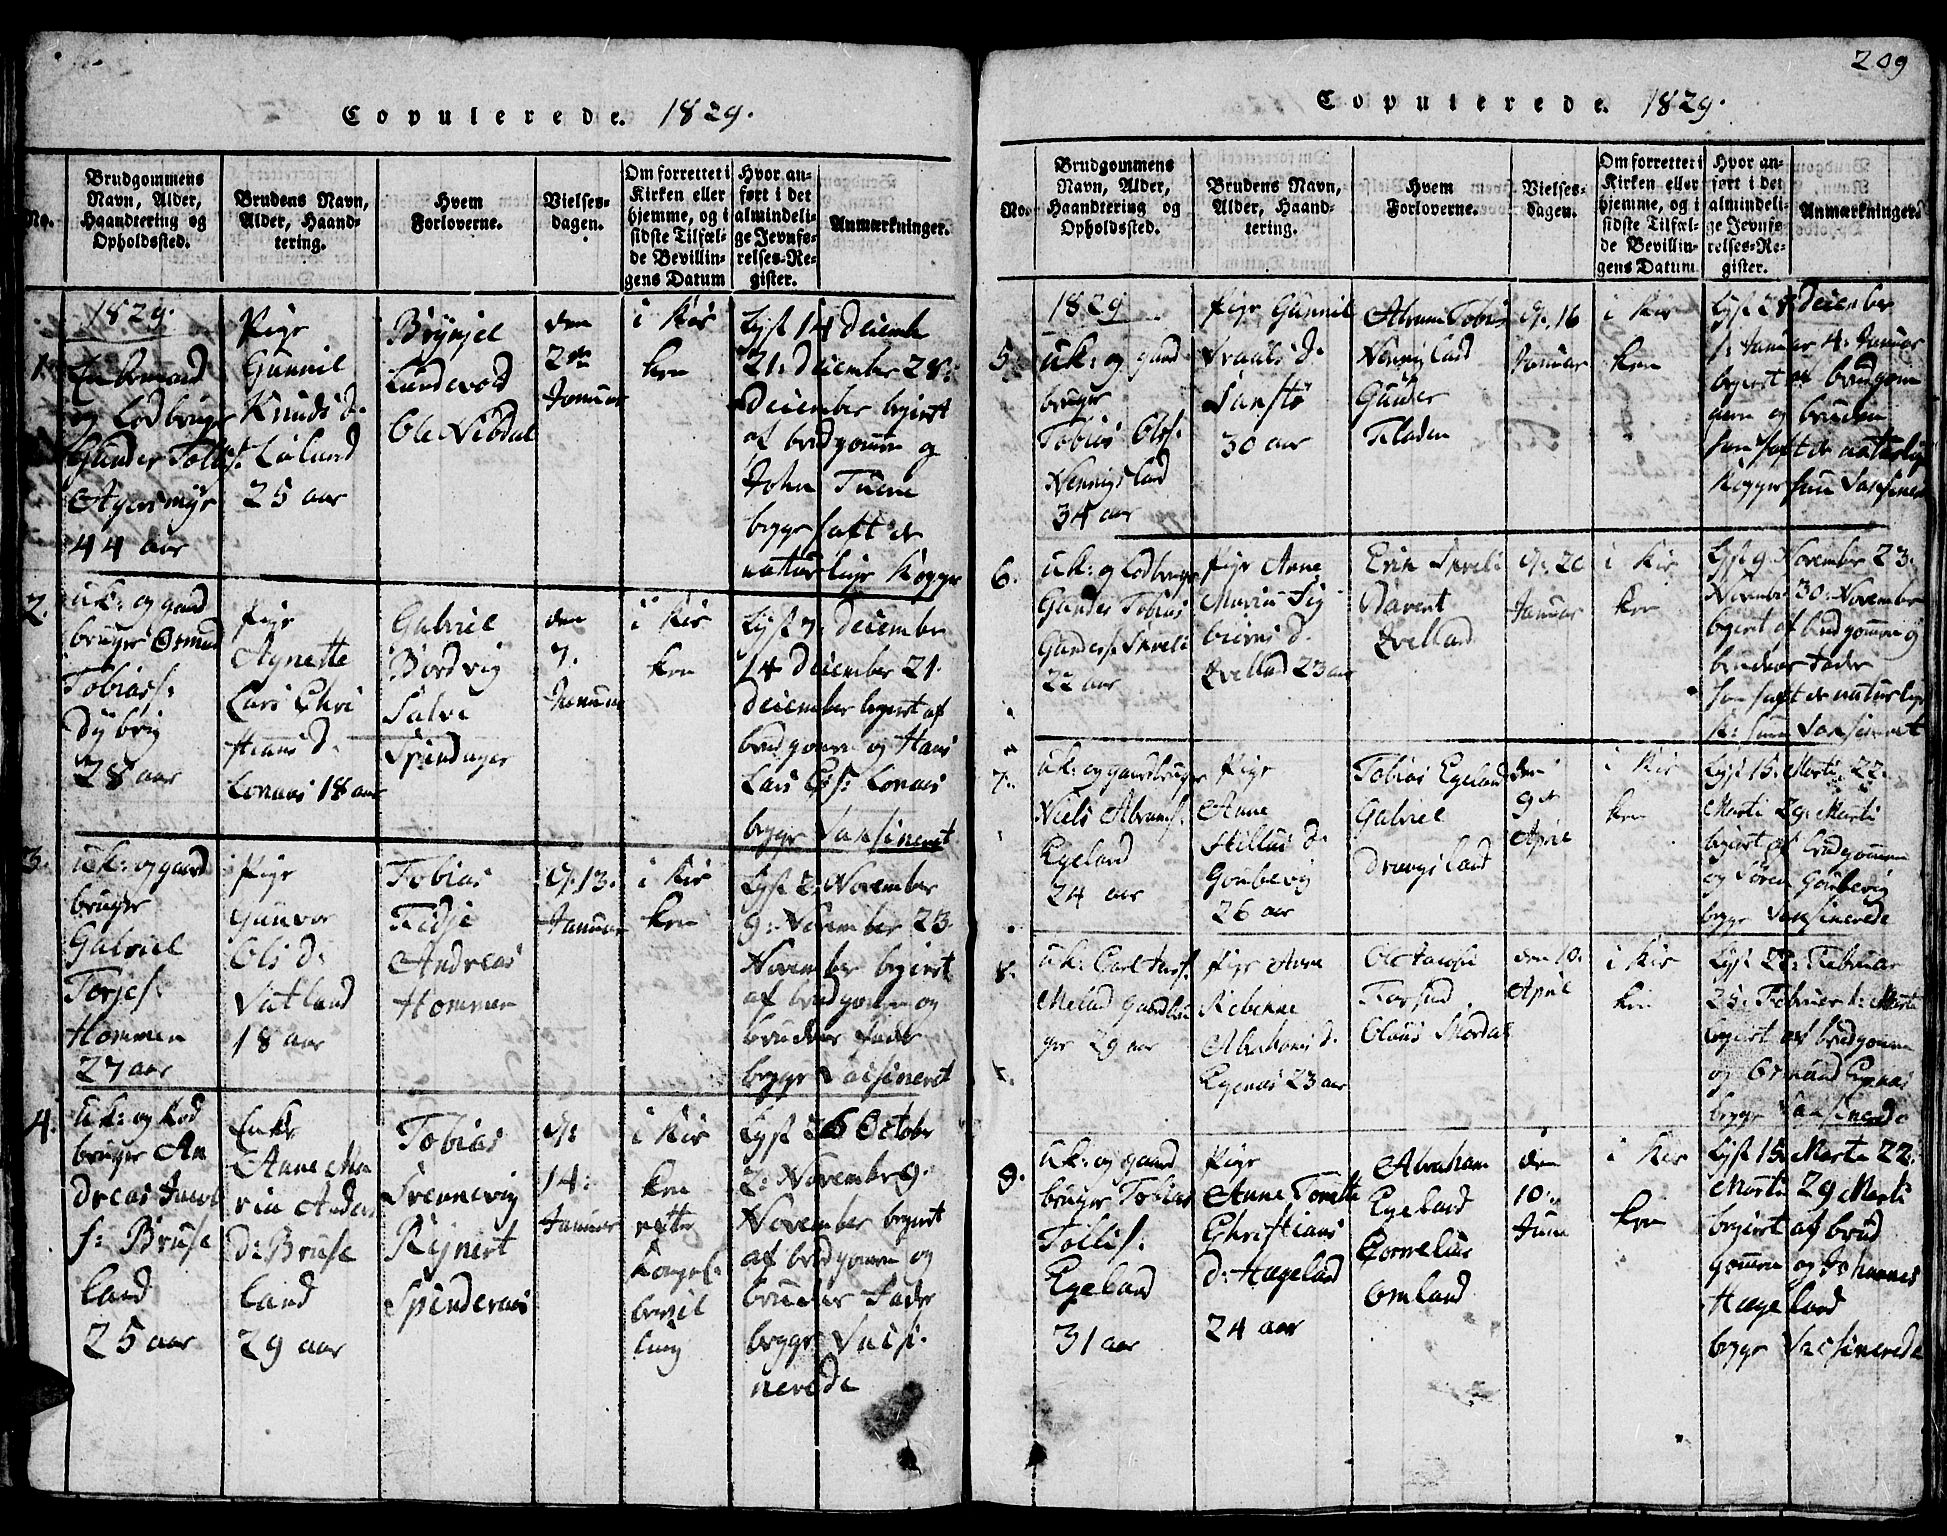 Copulerede. 1829.
No.
Brudgommens
Navn, Alder,
Haandtering og
Opholdssted.
Brudens Navn,
Alder, Haand-
tering.
Hvem
Forloverne.
Vielses-
dagen.
Om forrettet i
Kirken eller
hjemme, og i
sidste Tilfæl-
de Bevillin-
gens Datum
Hvor an-
ført i det
almindeli-
ge Jevnfø-
relses-Re-
gister.
Anmærkninger.
1829.
1.
Enkemand
og Lodbruger
Gunder Tollis:
44 aar
Pige
Gunnil
Knuds d.
25 aar
Brynjel
Lundevold
Ole Nibdal
den
2den
Januar
i Kir
ken
Lyst 14 Decembe
21: December 28:
December begiert
af brudgomm og
John Tuene
begge haft de
naturlige Kopper
2.
uk: og gaard
bruger Osmund
Tobias s:
Dybvig
28 aar
Pige
Agnette
Lars Chri
stians d.
Lonaas 18 aar
Gabriel
Bordvig
Salve
den
7.
Januar
i Kir
ken
Lyst 7: December
14 December 21.
December begiert af
brudgomm og Hans
Lars Chs: Lonaas
begge Vaksineret
3.
uk: og gaard
bruger
Gabriel
Torjes:
Hommen
27 aar
Pige
Gunvor
Ols d:
Vatland
18 aar
Tobias
Fedje
Andreas
Hommen
d: 13.
Januar
i Kir
ken
Lyst 2: November
9: November 23.
November begiert
af brudgomm og
brudens Fader
begge Vacsineret
4.
uk: og Lod
bruger An
dreas Jacob
s: Bruse
land
25 aar
Enke
Anne Ma
ria Anders
d: Bruse
land
29 aar
Tobias
Svennevig
Rejnert
Spindernes
d:
14:
Januar
i Kir
ken
efter
Kongel:
bevil
ling
Lyst 26 October
2: November 9.
November begiert
af brudgomm og
brudens Fader
begge Vacsi-
nerede
209
Copulerede. 1829.
No.
Brudgommens
Navn, Alder,
Haandtering og
Opholdssted.
Brudens Navn,
Alder, Haand-
tering.
Hvem
Forloverne.
Vielses-
dagen.
Om forrettet i
Kirken eller
hjemme, og i
sidste Tilfæl-
de Bevillin-
gens Datum
Hvor an-
ført i det
almindeli-
ge Jevnfø-
relses-Re-
gister.
Anmærkninger.
1829
5.
uk: og gaard
bruger
Tobias Ols:
34 aar
Pige Gunnil
30 aar
Abram Tobis
Gunder
Fladen
d: 16
Januar
i Kir
ken
Lyst 28 December
1: Januar 4: Januar
begiert af brudgom
men og bruden
han haft de naturlige
Kopper hun Vaksineret
6.
uk: og Lodbruger
Gunder Tobias
Gunders: Skreli
22 aar
Pige Anne
Maria Sig
biørns d.
Qvelland 23 aar
Erik Skreli
Qvelland
d: 20
Januar
i Kir
ken
Lyst 9 November 23.
November 30: November
begiert af brudgomm og
brudens Fader
han haft de naturlige
K: hun Vaksineret
7.
uk: og gaardbruger
Niels Abrams:
Egeland
24 aar
Pige
Anne
d.
26 aar
Tobias Egeland
Gabriel
Drangsland
den
9de
April
i Kir
ken
Lyst 15: Marti 22.
Marti 29: Marti
begiert af brudgommen
og Søren
begge Vaksinerede
8.
uk:
gaardbru
ger 29 aar
Pige Anne
Rebekke
Abrahams d.
Egenæs 23 aar
Ole
den 10.
April
i Kir
ken
Lyst 22: Februar
25: Februar 1: Marti
begiert af brudgomm
og Osmund Egenæs
begge Vaksinerede
9.
uk: og gaard
bruger Tobias
Tollis:
Egeland
31 aar
Pige
Anne Tonette
Christians
d: Hægeland
24 aar
Abraham
Egeland
Cornelius
Omland
den
10de
Juni
i Kir
ken
Lyst 15: Marti 22:
Marti 29 Marti
begiert af brud
gomm og Johannes
Hægeland
begge Vacsinerede